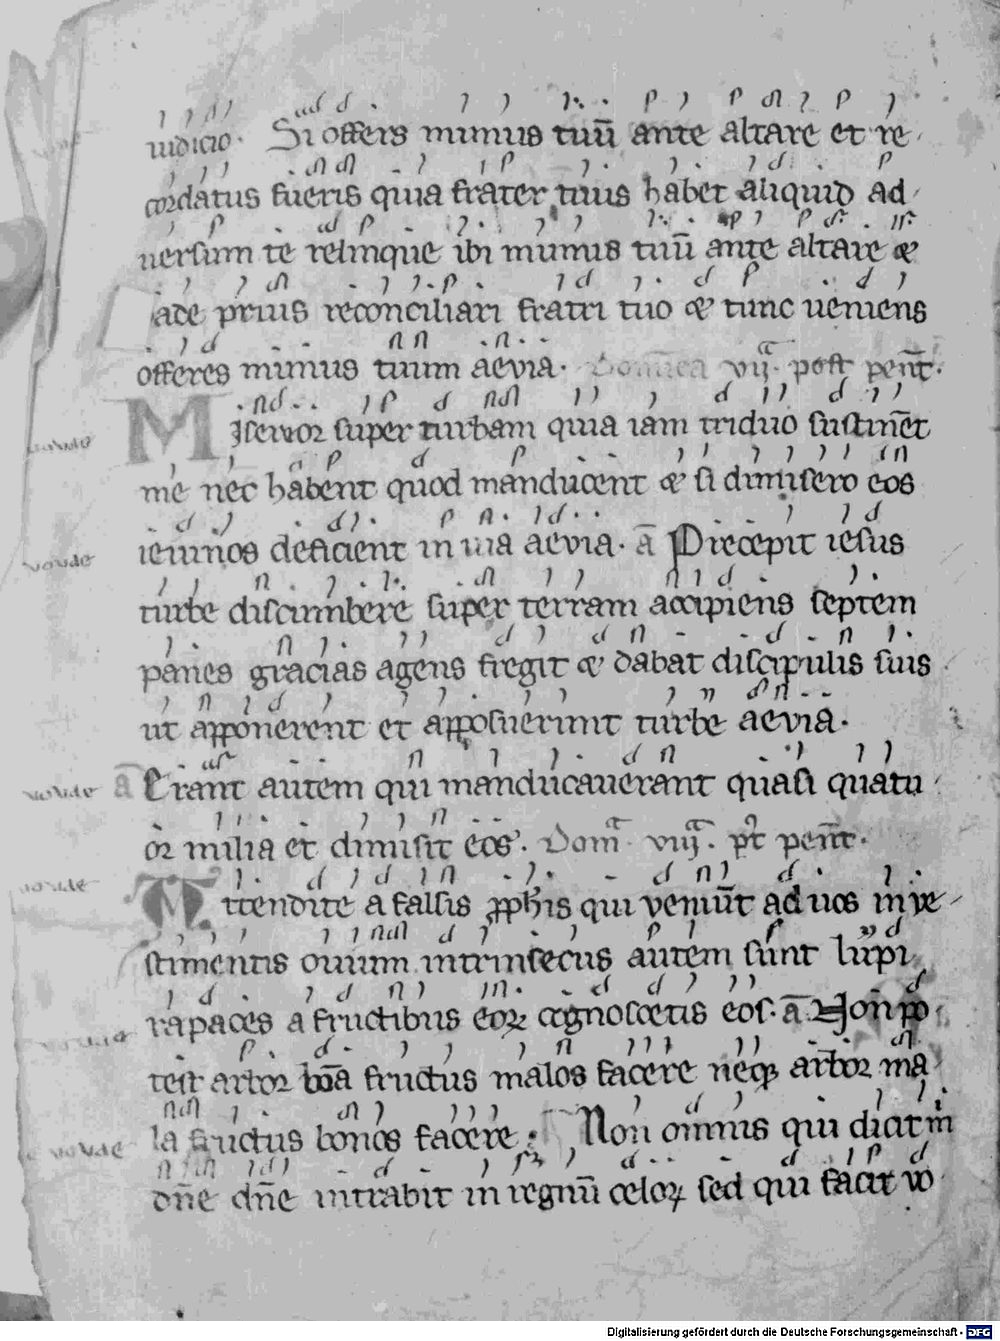 iudicio. Si offers munus tuū ante altare et re
cordatus fueris quia frater tuus habet aliquid ad
uersum te relinque ibi munus tuū ante altare &
uade prius reconciliari fratri tuo & tunc ueniens
offeres munus tuum aevia. Domīnca vij. post penť.
Misereor super turbam quia iam triduo sustinēt
me nec habent quod manducent & si dimisero eos
ieiunos deficient in uia aevia. ā Precepit iesus
turbe discumbere super terram accipiens septem
panes gracias agens fregit & dabat discipulis suis
ut apponerent et apposuerunt turbe aevia.
a Erant autem qui manducauerant quasi quatu
or milia et dimisit eos. Dom viij. pt penť.
Attendite a falsis ꝓphis qui veniūt ad uos in ve
stimentis ouium intrinsecus autem sunt lupi
rapaces a fructibus eoꝝ cognoscetis eos. ā Non po
test arbor bōa fructus malos facere neqꝫ arbor ma
la fructus bonos facere. Non omnis qui dicit m
dn̄e dn̄e intrabit in regnū celoꝝ sed qui facit vo
vovde
vovde
vovde
vovde
vovde
Digitalisierung gefördert durch die Deutsche Forschungsgemeinschaft - DFG